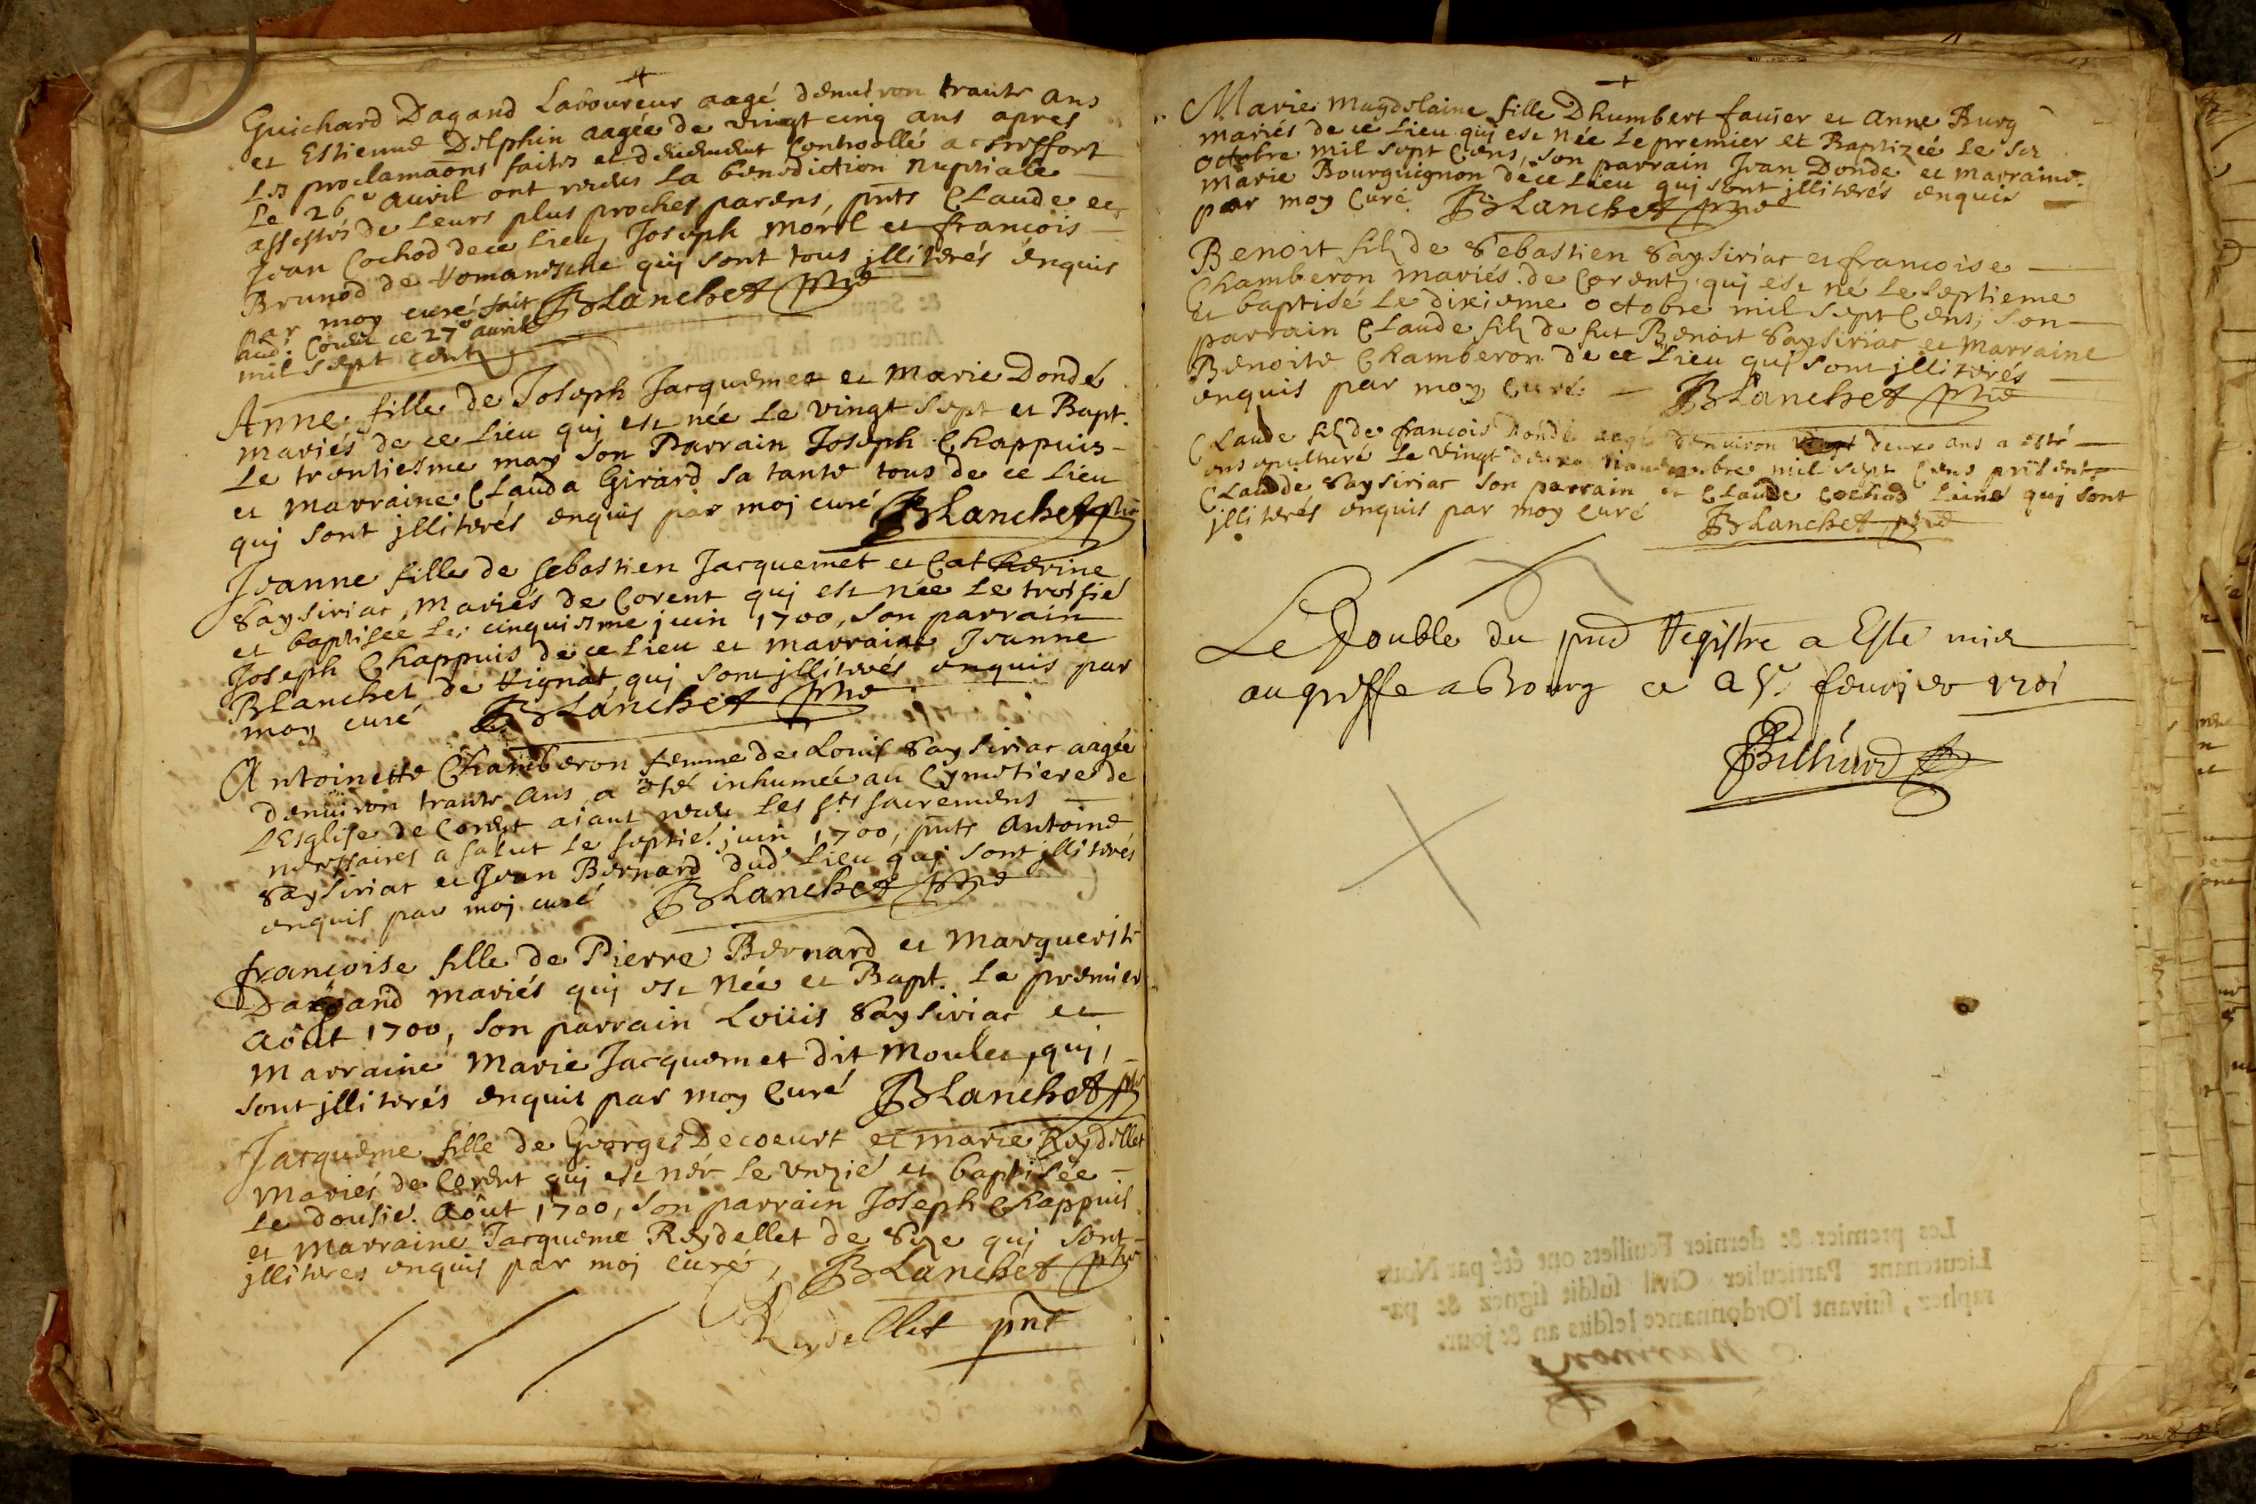 Guichard Dagand Laboureur aagé denuiron trante ans
et Estienne Delphin aagée de vingt cinq ans apres
les proclamaons faites et deuement Controollé a Treffort
Le 26e auril ont receu la benediction nuptiale
assistés de leurs plus proches parens, pnts Claude et
Jean Cochod de ce lieu Joseph Morel et francois
Brunod de Romanesche quj sont tous jlliterés enquis
par moy curé fait BLanchet ptre
aud. Corent ce 27e auril
mil sept cent
Anne fille de Joseph Jacquemet et Marie Dondé
mariés de ce Lieu quj est née Le vingt sept et Bapt.
Le trentiesme may son Parrain Joseph Chappuis
et marraine Clauda Girard sa tante tous de ce Lieu
quj sont jlliterés enquis par moj curé BLanchet ptre
Jeanne fille de sebastien Jacquemet et Catherine
Saysiriac mariés de Corent quj est née Le troisié
et baptisée Le cinquiesme juin 1700, son parrain
Joseph Chappuis de ce Lieu et marraine Jeanne
BLanchet de Rignat quj sont jlliterés enquis par
moy curé BLanchet ptre
Antoinette Chamberon femme de Louis Saysiriac aagée
denuiron trante ans a été inhumée au Cymetiere de
L'Esglise de Corent aiant receu les sts sacremens
necessaires a salut le septie. juin 1700, pnts Antoine
Saysiriac et Jean Bernard dud. Lieu quj sont jlliterés
enquis par moj curé BLanchet ptre
francoise fille de Pierre Bernard et Marguerite
Dagand mariés quj est Née et Bapt. Le premier
Aôut 1700, son parrain Loüis Saysiriac et
Marraine Marie Jacquemet dit Moulet, quj
sont jlliterés enquis par moy Curé BLanchet ptre
Jacqueme fille de George Decoeurt et marie Reydellet
Mariés de Corent quj est née le vnzié et baptisée
Le dousié. Aôut 1700, son parrain Joseph Chappuis
et Marraine Jacqueme Reydellet de quj sont
jlliteres enquis par moj curé, BLanchet ptre
Reydellet pnt
Marie Magdelaine fille Dhumbert fauier et Anne Burg
mariés de ce Lieu quj est née Le premier et Baptizée le
octobre mil sept Cens, son parrain Jean Donde et marraine
Marie Bourguignon de ce Lieu quj sont jlliterés enquis
par moy Curé BLanchet ptre
Benoit filz de Sebastien Saysiriac et francoise
Chamberon mariés de Corent, quj est né Le septieme
et baptisé Le dixieme octobre mil sept Cens, son
parrain Claude filz de fut Benoit Saysiriac et Marraine
Benoite Chamberon de ce Lieu quj sont jlliterés
enquis par moy Curé BLanchet ptre
Claude filz de francois Dondé aagé denuiron deux ans a esté
ensepulturé Le vingt mil sept Cens présents
Claude Saysiriac son parrain et Claude Cochod quj sont
jlliterés enquis par moy curé BLanchet ptre
Le Double du pnt Registre a Esté mis
au greffe a Bourg ce feurier 1701
Les premier & dernier Feuillets ont été par Nous
Lieutenant Particulier Civil susdit signez & pa-
raphez, suivant l'Ordonnance lesdits an & jour.